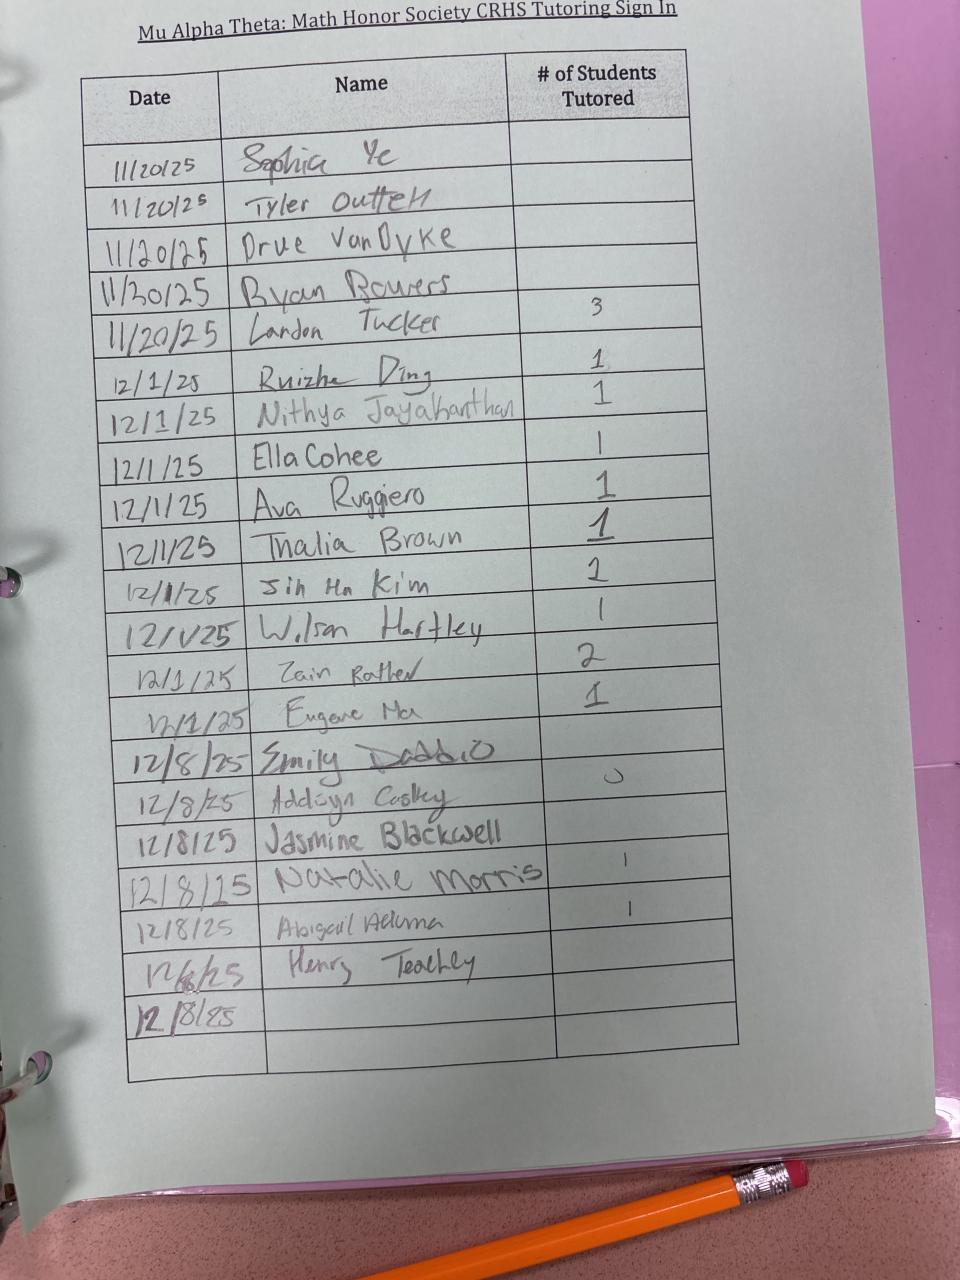 Mu Alpha Theta: Math Honor Society CRHS Tutoring Sign In
Date Name # of Students Tutored
11/20/25 Sophia Ye
11/20/25 Tyler Outten
11/20/25 Drue VanDyke
11/20/25 Ryan Bowers
11/20/25 Landon Tucker 3
12/1/25 Ruizhe Ding 1
12/1/25 Nithya Jayakanthan 1
12/1/25 Ella Cohee 1
12/1/25 Ava Ruggiero 1
12/1/25 Thalia Brown 1
12/1/25 Jin Ha Kim 2
12/1/25 Wilson Hartley 1
12/1/25 Zain Rather 2
12/1/25 Eugene Ma 1
12/8/25 Emily Daddio
12/8/25 Addisyn 0
12/8/25 Jasmine Blackwell
12/8/25 Natalie Morris 1
12/8/25 Abigail 1
12/8/25 Henry Teachey
12/8/25